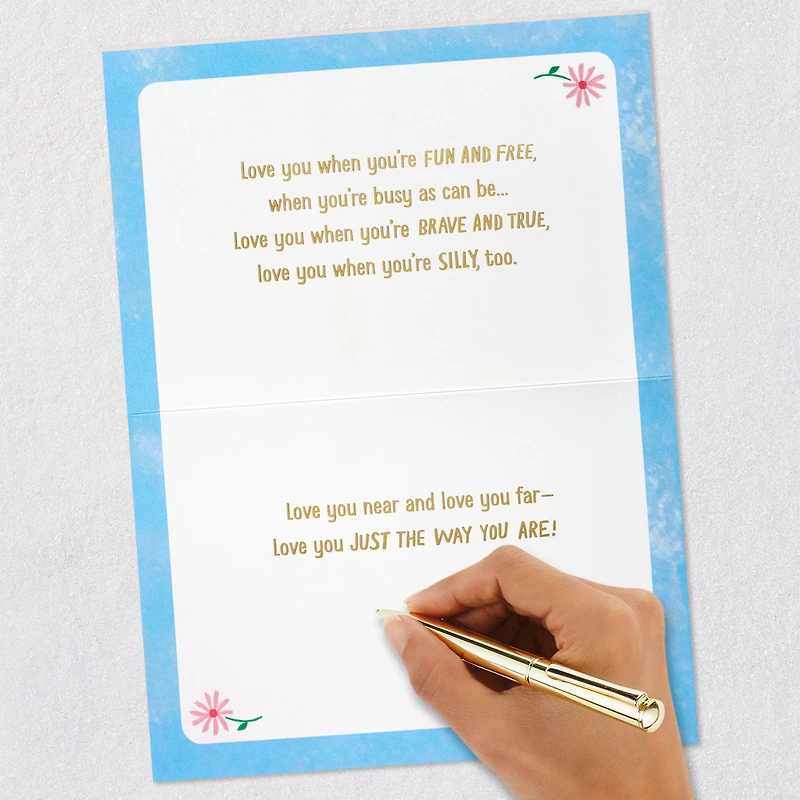 Love you when you're FUN AND FREE,
when you're busy as can be...
Love you when you're BRAVE AND TRUE,
love you when you're SILLY, too.
Love you near and love you far—
Love you JUST THE WAY YOU ARE!